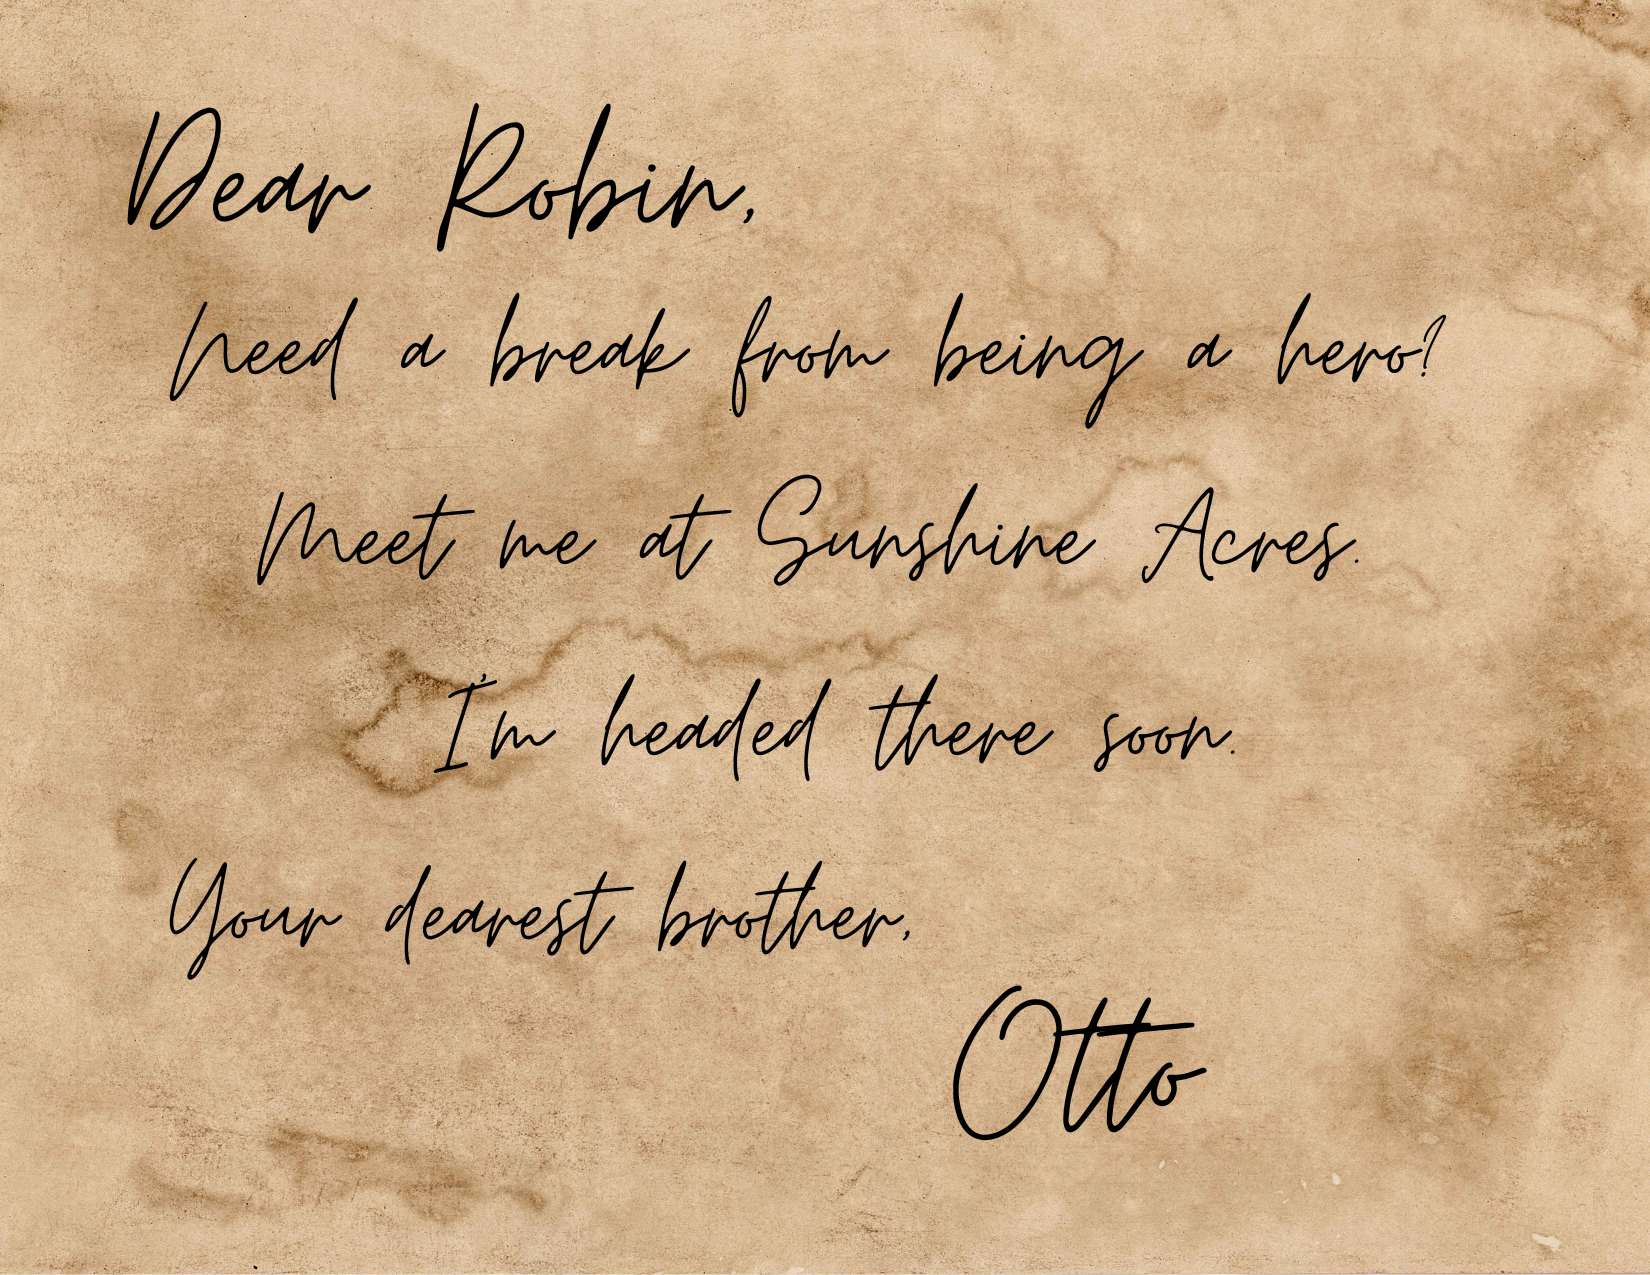 Dear Robin,
Need a break from being a hero?
Meet me at Sunshine Acres.
I'm headed there soon.
Your dearest brother,
Otto